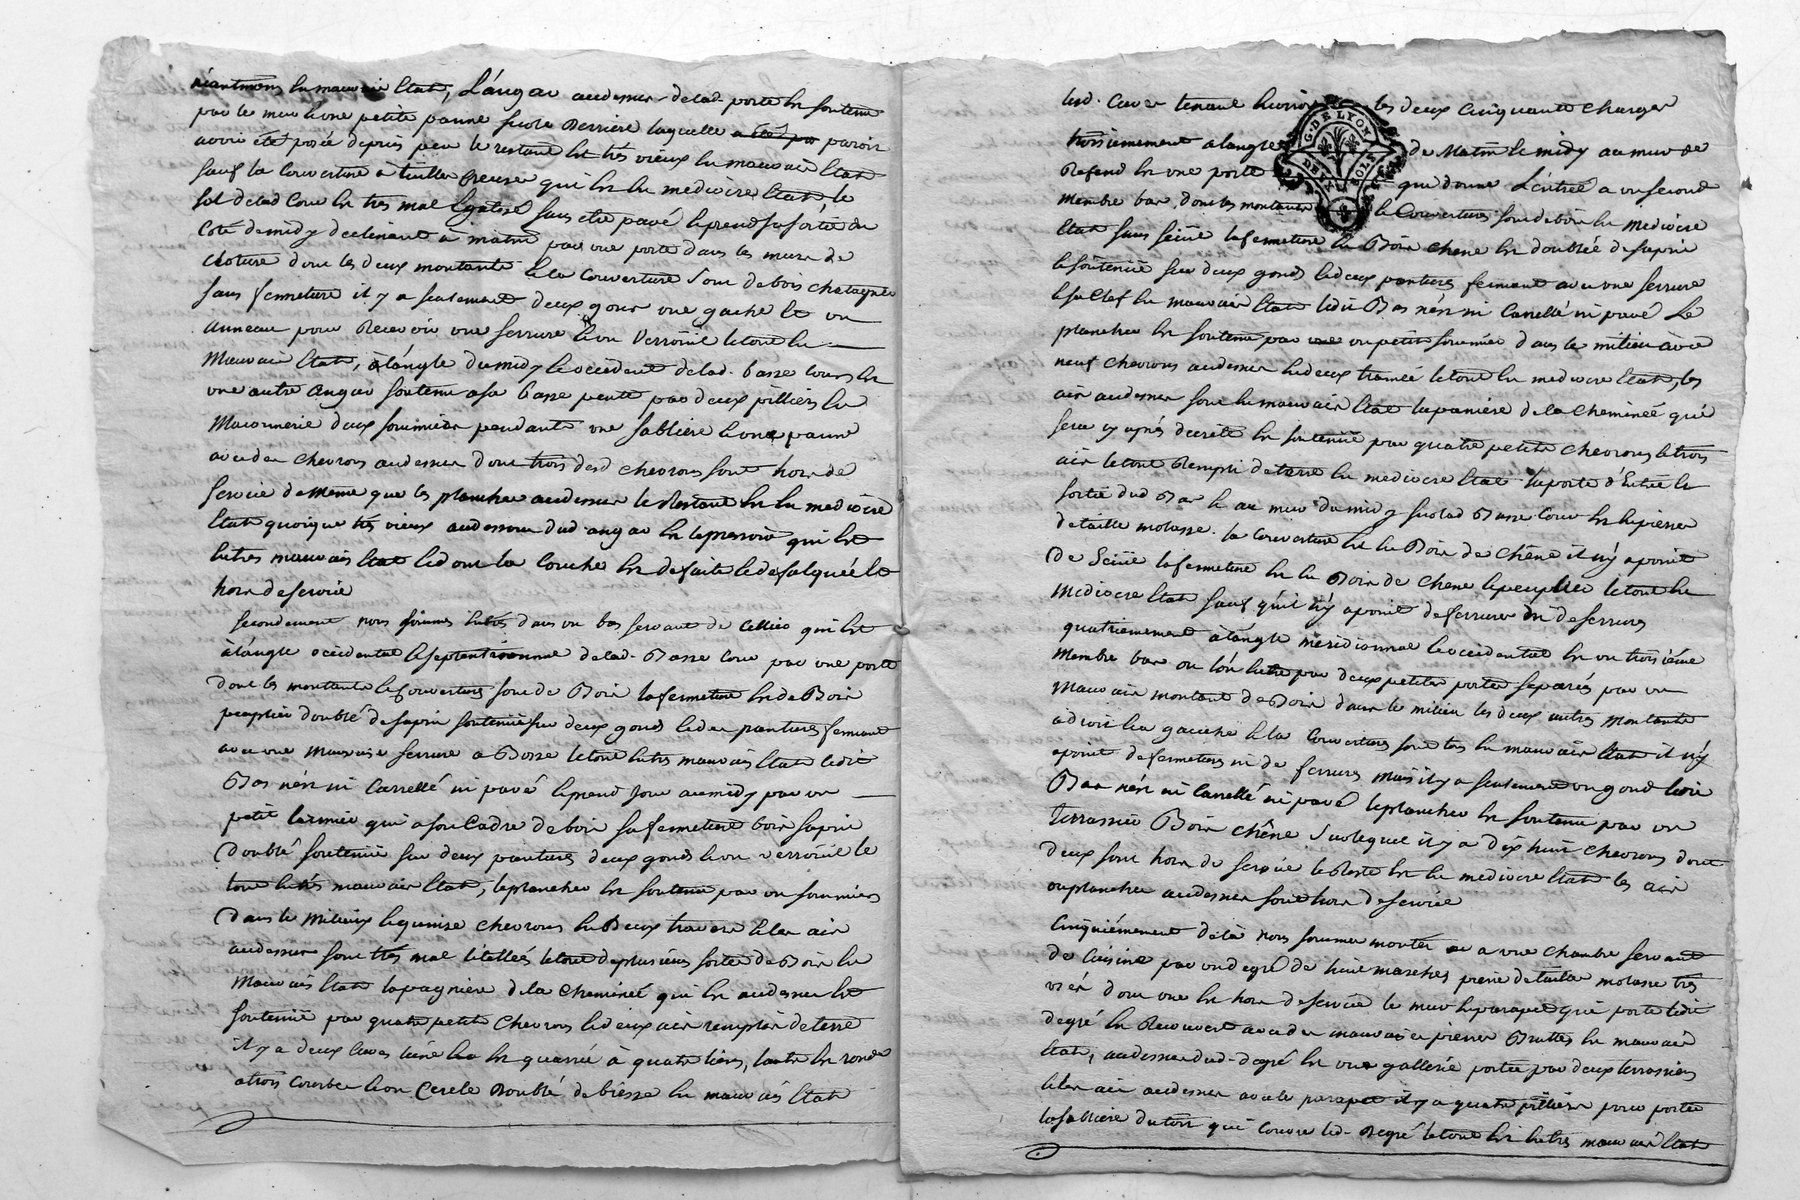 néantmoins en mauvais Etat, L'angar audessus de lad. porte est soutenu
par le mur et une petite panne sur le Derriere laquelle paroit
avoir été posée depuis peu le restant est très vieux en mauvais Etat
sauf la Couverture à tuiles Creuses qui est en mediocre Etat le
sol de lad Cour est tres mal Egalisé sans etre pavé et prend sa sortie du
Coté de midy declinant à matin par une porte dans les murs de
cloture dont les deux montants et la Couverture sont de bois chatagnier
sans fermeture il y a seulement deux gonds une gache et un
anneau pour Recevoir une serrure et un Verroüil le tout en
Mauvais Etat, à l'angle du midy et occident de lad. basse Cour est
une autre angar soutenu a sa basse pente par deux pilliers en
Maçonnerie deux sommiers pendants une sabliere et une panne
avec des chevrons audessus dont trois desd chevrons sont hors de
service de même que les planches audessus le Restant est en mediocre
Etat quoique très vieux audessous dud. angar est le pressoir qui est
en très mauvais Etat et dont la Couche est defaite et defalquée et
hors de service
Secondement nous sommes Entrés dans un bas servant de Cellier qui est
à l'angle occidental et septentrionnal de lad. Basse Cour par une porte
dont les montants et Couvertures sont de Bois la fermeture est de Bois
peuplier doublé de sapin soutenüe sur deux gonds et deux pantures fermant
avec une mauvaise serrure a Bosse le tout en très mauvais Etat ledit
Bas n'est ni Carrellé ni pavé et prend jour au midy par un
petit larmier qui a son Cadre de bois sa fermeture bois sapin
Doublé soutenüe sur deux pantures deux gonds et un verroüil le
tout en très mauvais Etat, le plancher est soutenu par un sommier
Dans le Milieux et quinze chevrons en Deux travées et les ais
audessus sont très mal Etallées le tout de plusieurs sortes de Bois en
Mauvais Etat la pagniere de la Cheminée qui est audessus est
soutenüe par quatre petits chevrons et deux ais remplis de terre
il y a deux Cuves l'une est quarrée à quatre liens, l'autre est ronde
a trois Courbes et un Cercle Doublé de biesse en mauvais Etat
lesd. Cuves tenant Environ les deux Cinquante charges
troisiemement a l'angle de Matin et midy au mur de
Refend est une porte qui donne L'entrée a un second
Membre bas dont les montants et Couvertures sont de bois en mediocre
Etat sans seüil la fermeture en Bois chene est doublée de sapin
et soutenüe sur deux gonds et deux pantures fermant avec une serrure
et sa Clef en mauvais Etat ledit Bas n'est ni Carrellé ni pavé Le
plancher est soutenu par un petit sommier dans le milieu avec
neuf chevrons audessus et deux travées le tout en mediocre Etat, les
ais audessus sont en mauvais Etat la paniere de la Cheminée qui
sera cy après decrite est soutenüe par quatre petits Chevrons et trois
ais le tout Rempli de terre en mediocre Etat la porte d'Entrée et
sortie dud Bas et au mur du midy sur lad Basse Cour est en pierres
de taille molasse. la Couverture est en Bois de Chêne il n'y a point
De Seüil la fermeture est en Bois de Chene et peuplier le tout en
Mediocre Etat sauf qu'il n'y a point de serrure ni de ferrures
quatriemement à l'angle meridionnal et occidental est un troisième
Membre bas ou l'on Entre par deux petites portes separés par un
Mauvais montant de Bois dans le milieu les deux autres montants
à droit et a gauche et la Couverture sont tous en mauvais Etat il n'y
a point de fermetures ni de ferrures mais il y a seulement un gond ledit
Bas n'est ni Carrellé ni pavé le plancher est soutenu par un
terrassier Bois Chêne sur lequel il y a dix huit chevrons dont
deux sont hors de service le Reste est en mediocre Etat les ais
ou plancher audessus sont hors de service
Cinquiémement de là nous sommes montés a une Chambre servant
de Cuisine par un degré de huit marches pierre de taille molasse très
usés dont une est hors de service le mur et parapet qui porte ledit
degré est Recouvert avec des mauvaises pierres Bruttes en mauvais
Etat, audessus dud. degré est une gallerie portée par deux terrassiers
et les ais audessus avec le parapet il y a quatre pilliers pour porter
la sabliere du toit qui Couvre led. Degré le tout est en très mauvais Etat
G. DE LYON
DEUX SOLS